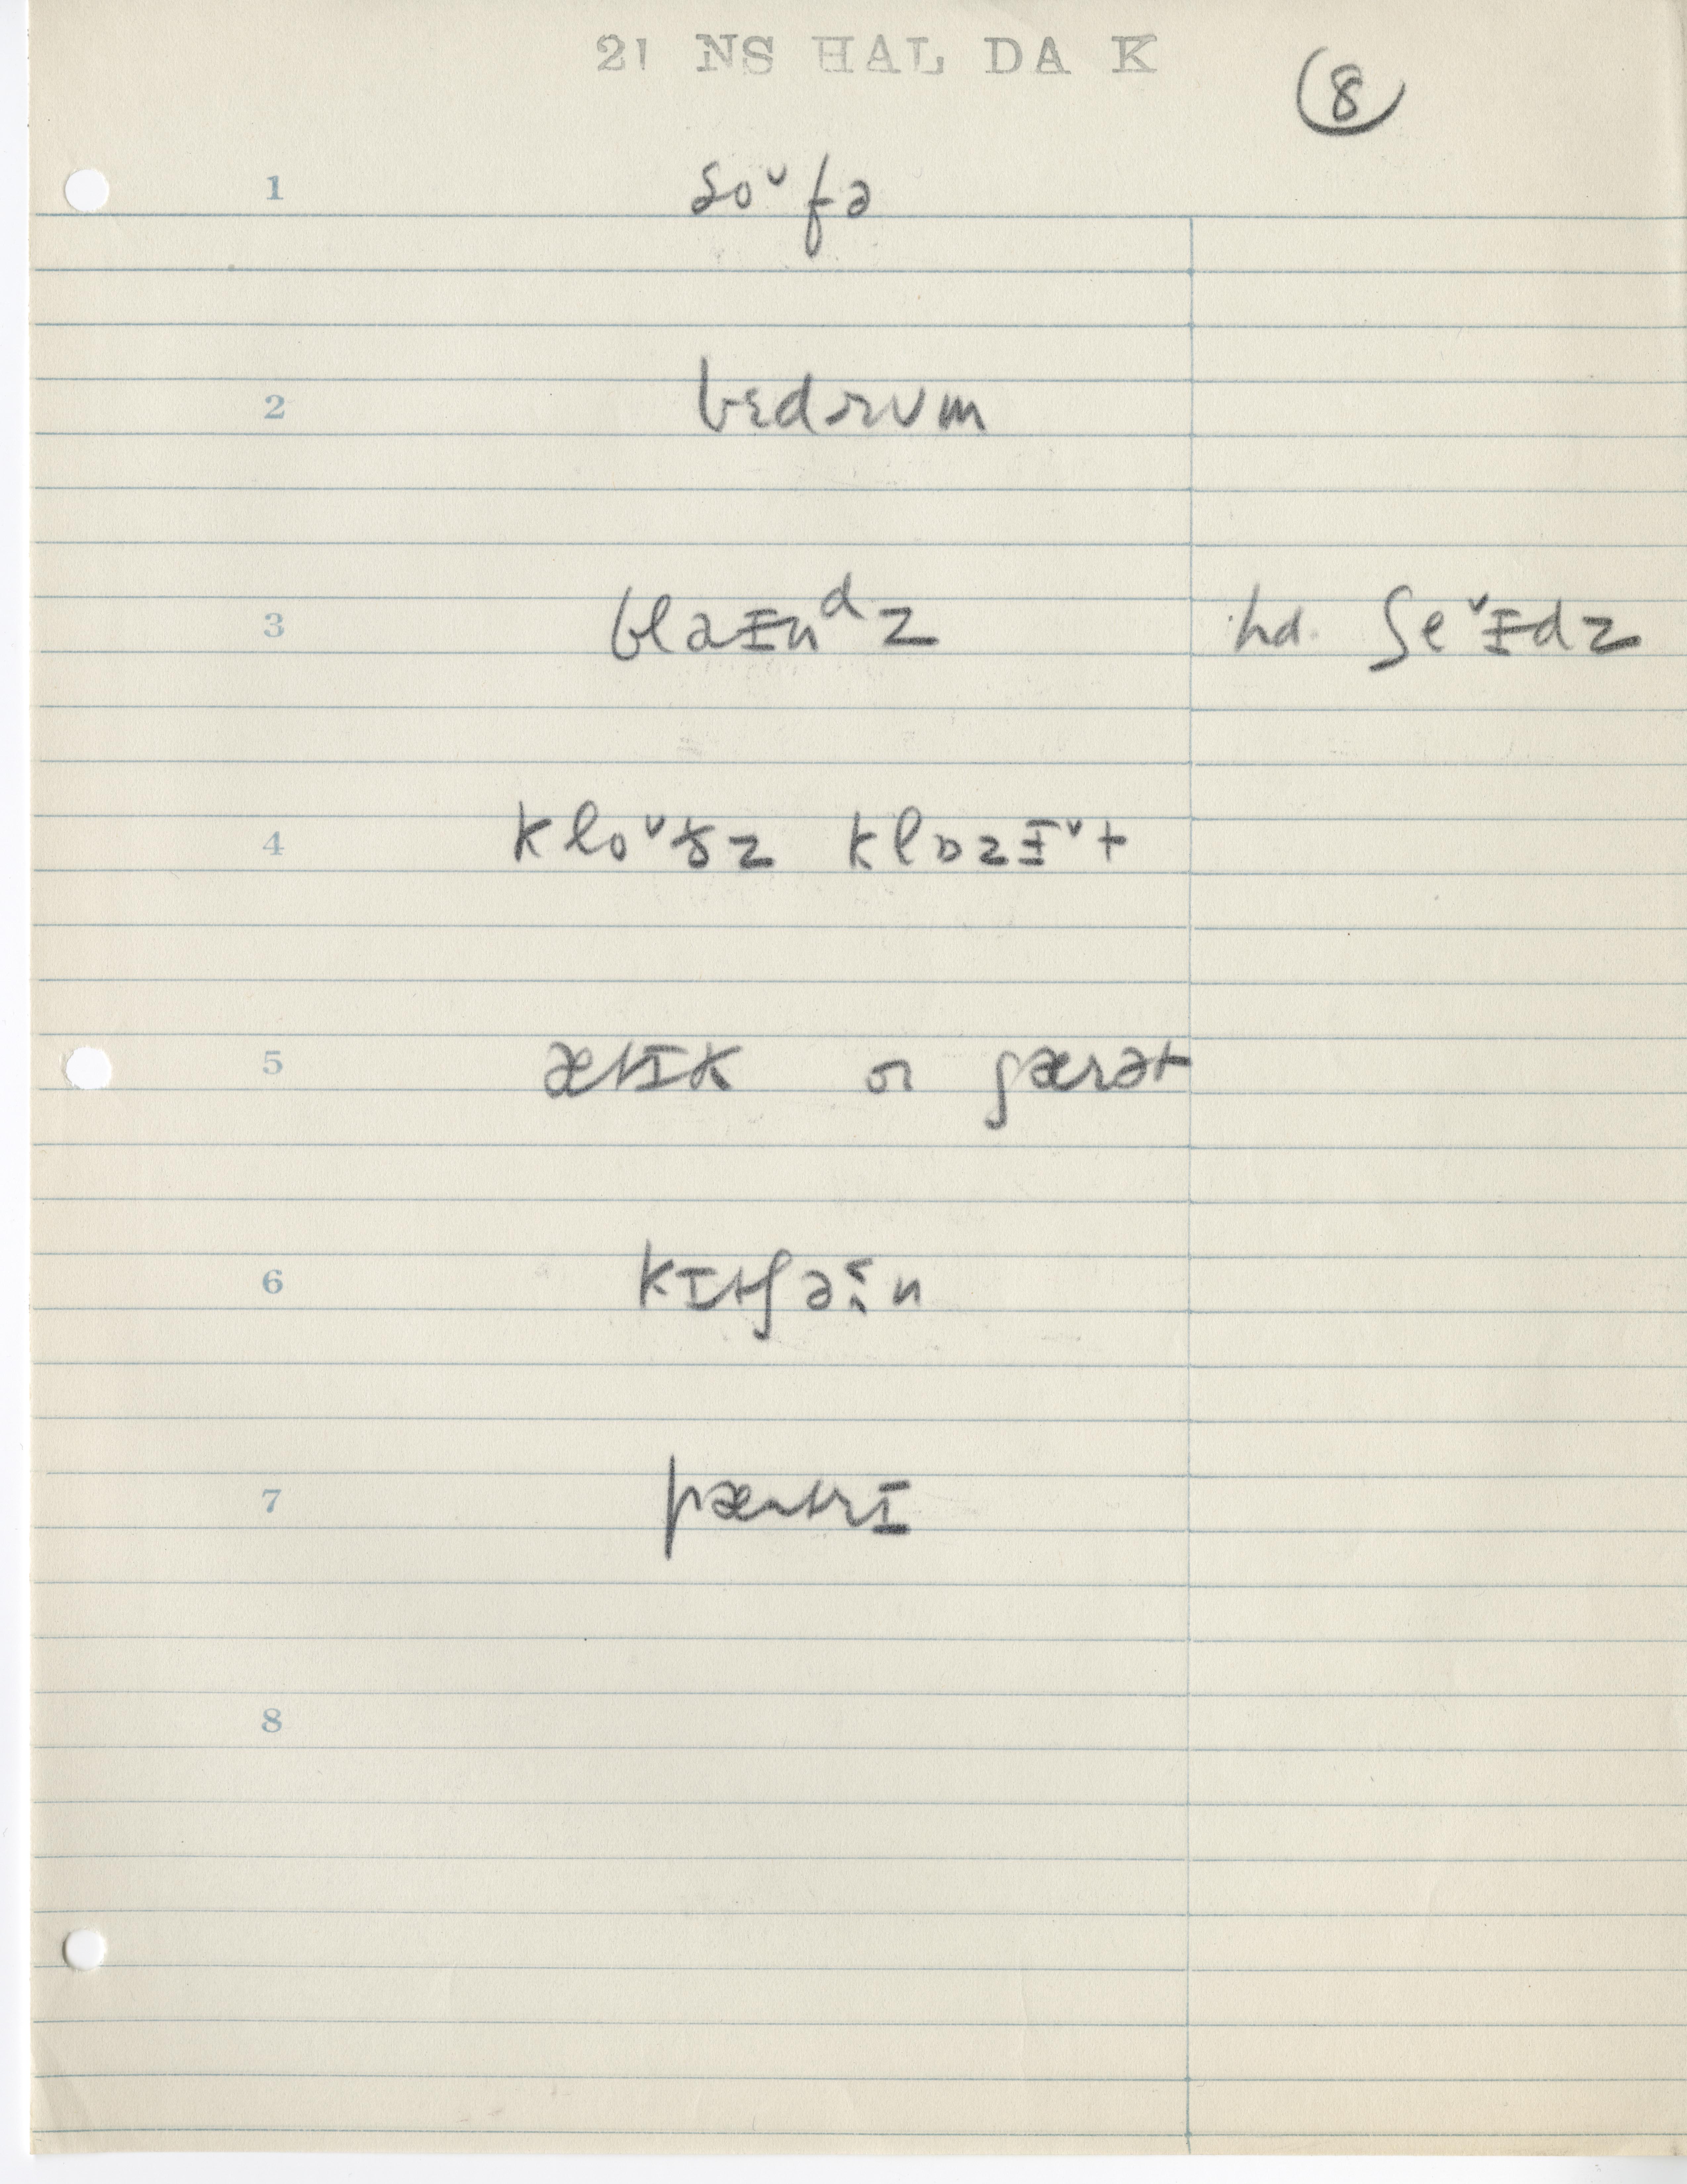 21 NS HAL DA K
8
1 soᵛfə
2 bɛdrʊm
3 blaɪnᵈz hd. ʃeᵛɪdz
4 kloᵛðz klɒzɪᵛt
5 ætɪk or gærət
6 kɪtʃən
7 pæntrɪ
8